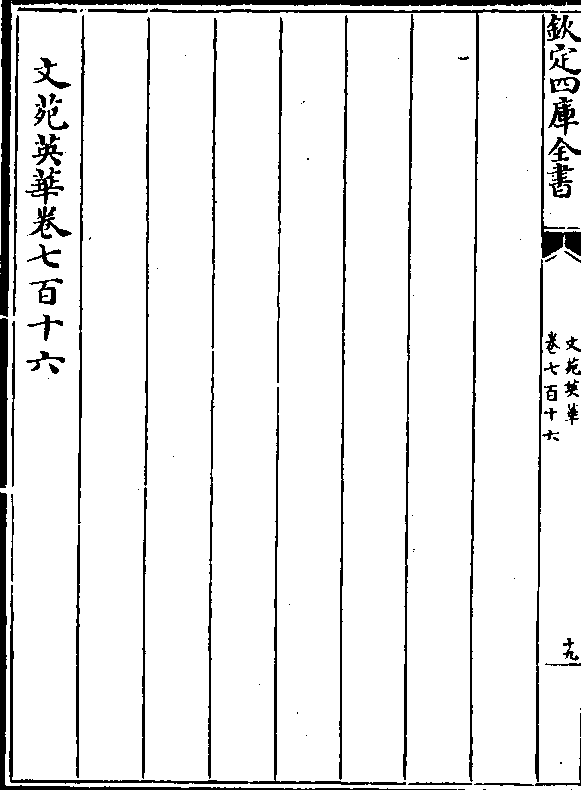 欽定四庫全書
文苑英華
卷七百十六
十九
文苑英華卷七百十六